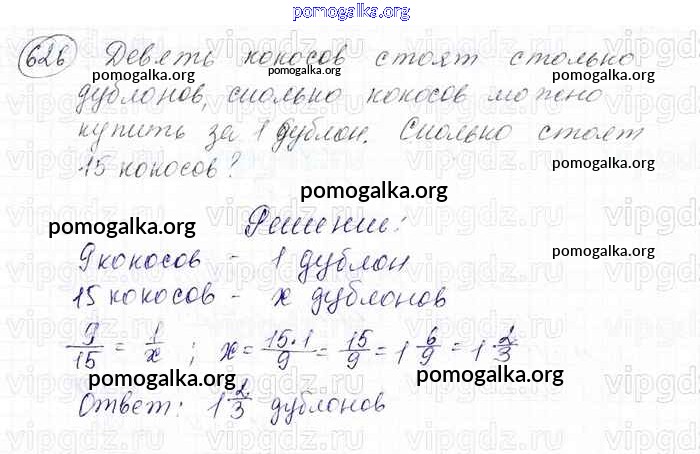 pomogalka.org
626 Девять кокосов стоят столько
дублонов, сколько кокосов можно
купить за 1 дублон. Сколько стоят
15 кокосов?
Решение:
9 кокосов - 1 дублон
15 кокосов - x дублонов
9/15 = 1/x ; x = 15·1/9 = 15/9 = 1 6/9 = 1 2/3
Ответ: 1 2/3 дублонов
pomogalka.org
pomogalka.org
pomogalka.org
pomogalka.org
pomogalka.org
pomogalka.org
pomogalka.org
pomogalka.org
pomogalka.org
pomogalka.org
vipgdz.ru